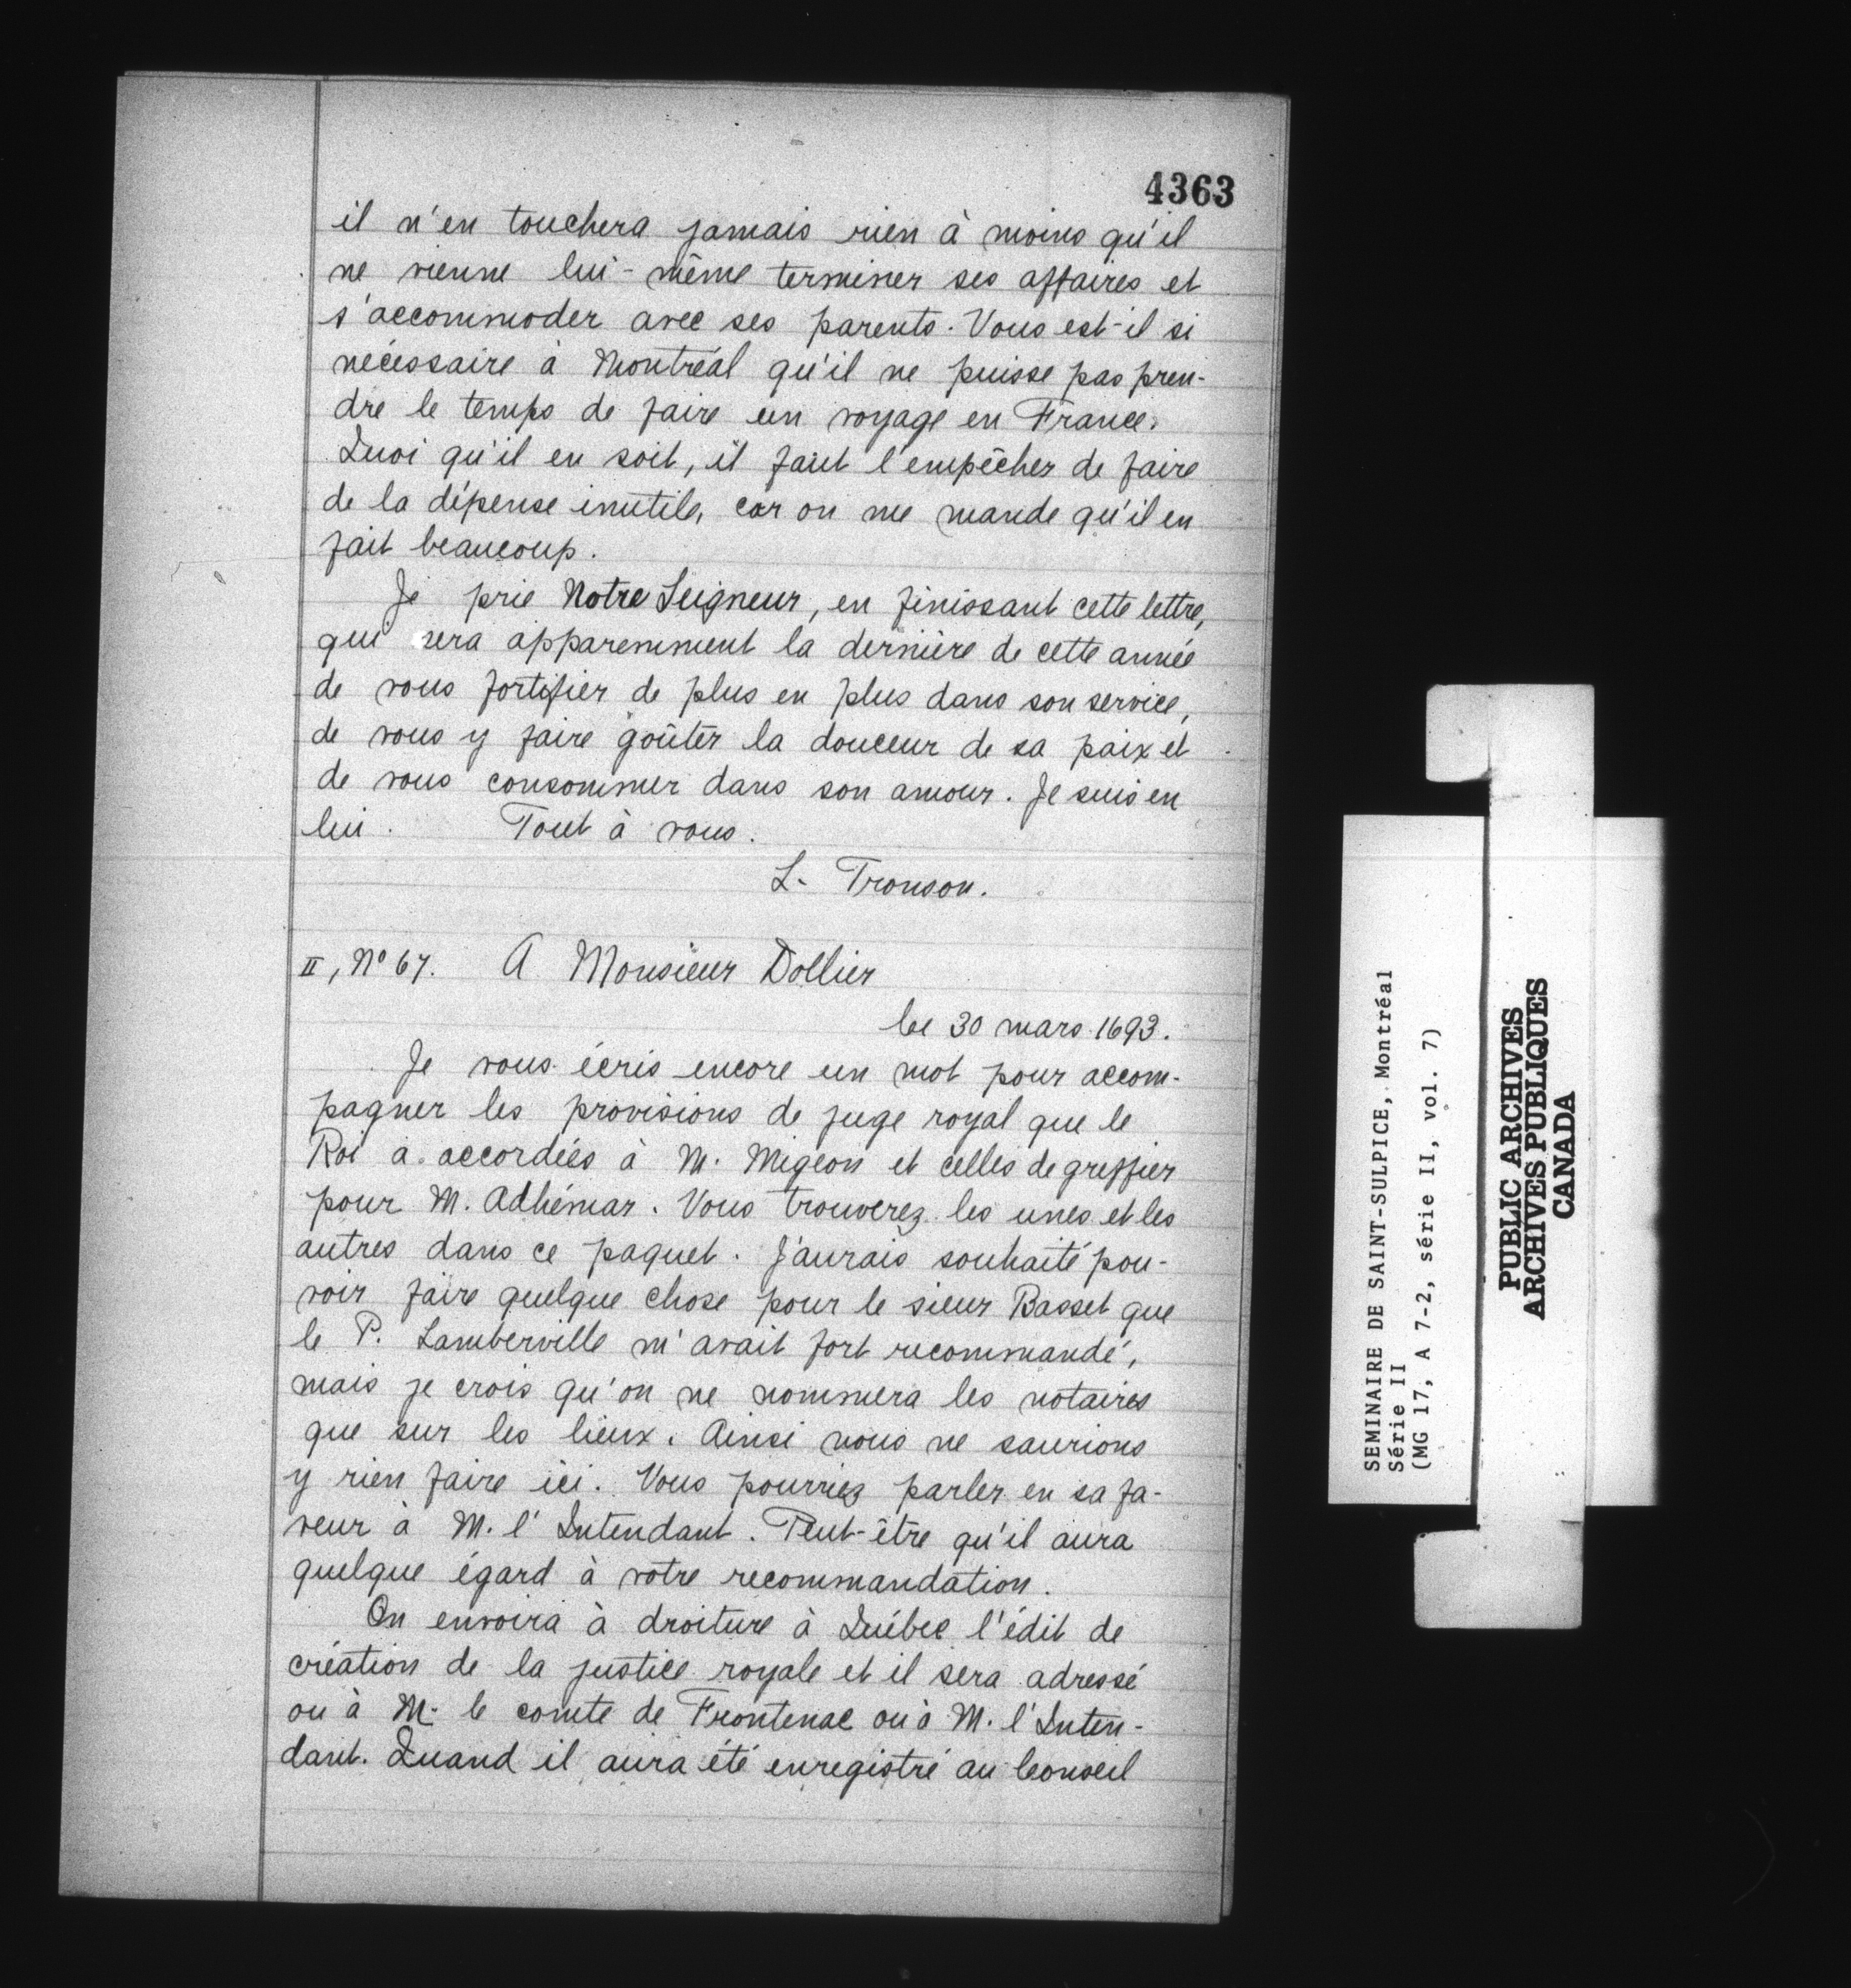 4363
il n'en touchera jamais rien à moins qu'il
ne vienne lui-même terminer ses affaires et
s'accommoder avec ses parents. Vous est-il si
nécessaire à Montréal qu'il ne puisse pas pren-
dre le temps de faire un voyage en France.
Quoi qu'il en soit, il faut l'empêcher de faire
de la dépense inutile, car on me mande qu'il en
fait beaucoup.
Je prie Notre Seigneur, en finissant cette lettre,
qui sera apparemment la dernière de cette année
de vous fortifier de plus en plus dans son service,
de vous y faire goûter la douceur de sa paix et
de vous consommer dans son amour. Je suis en
lui. Tout à vous.
L. Tronson.
II, No 67. A Monsieur Dollier
le 30 mars 1693.
Je vous écris encore un mot pour accom-
pagner les provisions de juge royal que le
Roi a accordées à M. Migeon et celles de greffier
pour M. Adhémar. Vous trouverez les unes et les
autres dans ce paquet. J'aurais souhaité pou-
voir faire quelque chose pour le sieur Basset que
le P. Lamberville m'avait fort recommandé,
mais je crois qu'on ne nommera les notaires
que sur les lieux. Ainsi nous ne saurions
y rien faire ici. Vous pourriez parler en sa fa-
veur à M. l'Intendant. Peut-être qu'il aura
quelque égard à votre recommandation.
On envoira à droiture à Québec l'édit de
création de la justice royale et il sera adressé
ou à M. le comte de Frontenac ou à M. l'Inten-
dant. Quand il aura été enregistré au Conseil
SEMINAIRE DE SAINT-SULPICE, Montréal
Série II
(MG 17, A 7-2, série II, vol. 7)
PUBLIC ARCHIVES
ARCHIVES PUBLIQUES
CANADA